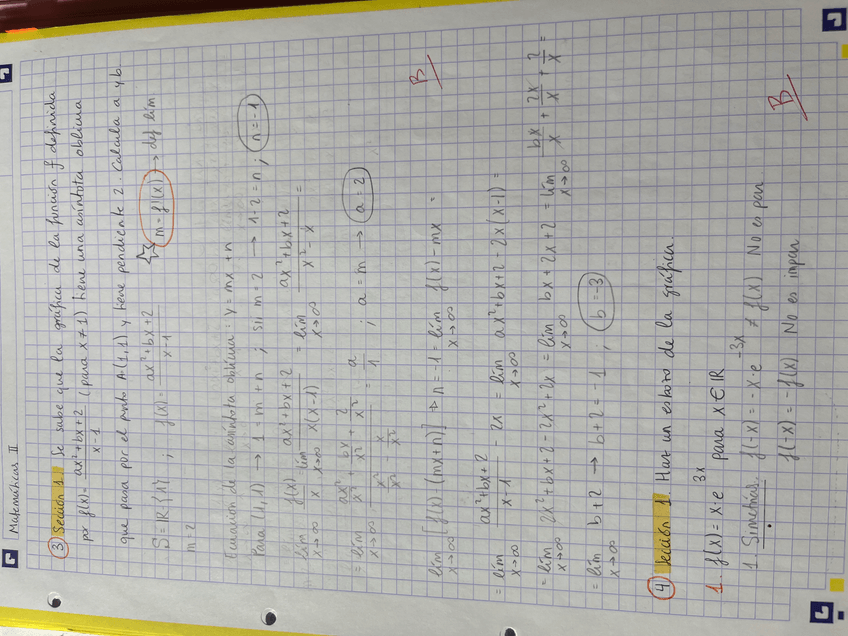 Matemáticas II
③ Sección 1. Se sabe que la gráfica de la función f definida
por f(x) = (ax² + bx + 2)/(x - 1) (para x ≠ 1) tiene una asíntota oblicua
que pasa por el punto A(1,1) y tiene pendiente 2. Calcula a y b.
D = ℝ \ {1} ; f(x) = (ax² + bx + 2)/(x - 1) m = f'(x) → def lím
m = 2
Ecuación de la asíntota oblicua: y = mx + n
Para (1,1) → 1 = m + n ; si m = 2 → 1 - 2 = n ; n = -1
lím x→∞ f(x)/x = lím x→∞ (ax² + bx + 2)/(x(x - 1)) = lím x→∞ (ax² + bx + 2)/(x² - x) =
= lím x→∞ (ax²/x² + bx/x² + 2/x²)/(x²/x² - x/x²) = a/1 ; a = m → a = 2
lím x→∞ [f(x) - (mx + n)] → n = -1 = lím x→∞ f(x) - mx =
= lím x→∞ (ax² + bx + 2)/(x - 1) - 2x = lím x→∞ ax² + bx + 2 - 2x(x - 1) =
= lím x→∞ 2x² + bx + 2 - 2x² + 2x = lím x→∞ bx + 2x + 2 = lím x→∞ bx/x + 2x/x + 2/x =
= lím x→∞ b + 2 → b + 2 = -1 ; b = -3
B
④ Sección 1. Haz un esbozo de la gráfica.
1. f(x) = x · e^3x para x ∈ ℝ
1. Simetrías. f(-x) = -x · e^-3x ≠ f(x) No es par
f(-x) = -f(x) No es impar
B